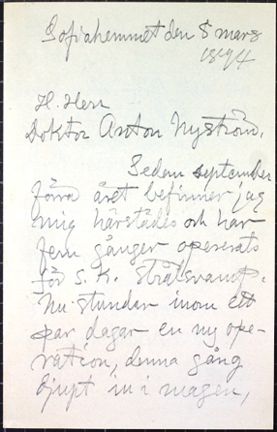 Sofiahemmet den 5 mars
1894
H. Herr
Doktor Anton Nyström.
Sedan september
förra året befinner jag
mig härstädes och har
fem gånger opererats
för s. k. strålsvamp.
Nu stundar inom ett
par dagar en ny ope-
ration, denna gång
djupt in i magen,